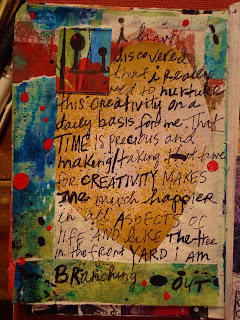 i have
discovered
that i really
need to nurture
this creativity on a
daily basis for me. That
TIME is precious and
making/taking that time
for CREATIVITY MAKES
me much happier
in all ASPECTS OF
life AND like The tree
in the front YARD i AM
BRanching OUT